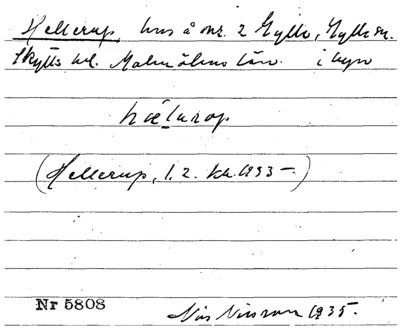 Hellerup, hus å nr. 2 Gylle, Gylle sn.
Skytts hd. Malmöhus län. i byn
hælurop
(Hellerup, l. 2. kk. 1933 –)
Nr 5808
Nils Nilsson 1935.